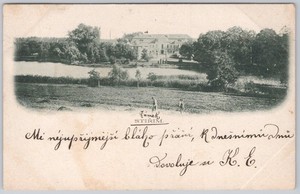 Zámek
Mé nejupřímnější blaho přání, k dnešnímu dnu
Dovoluje si K. C.